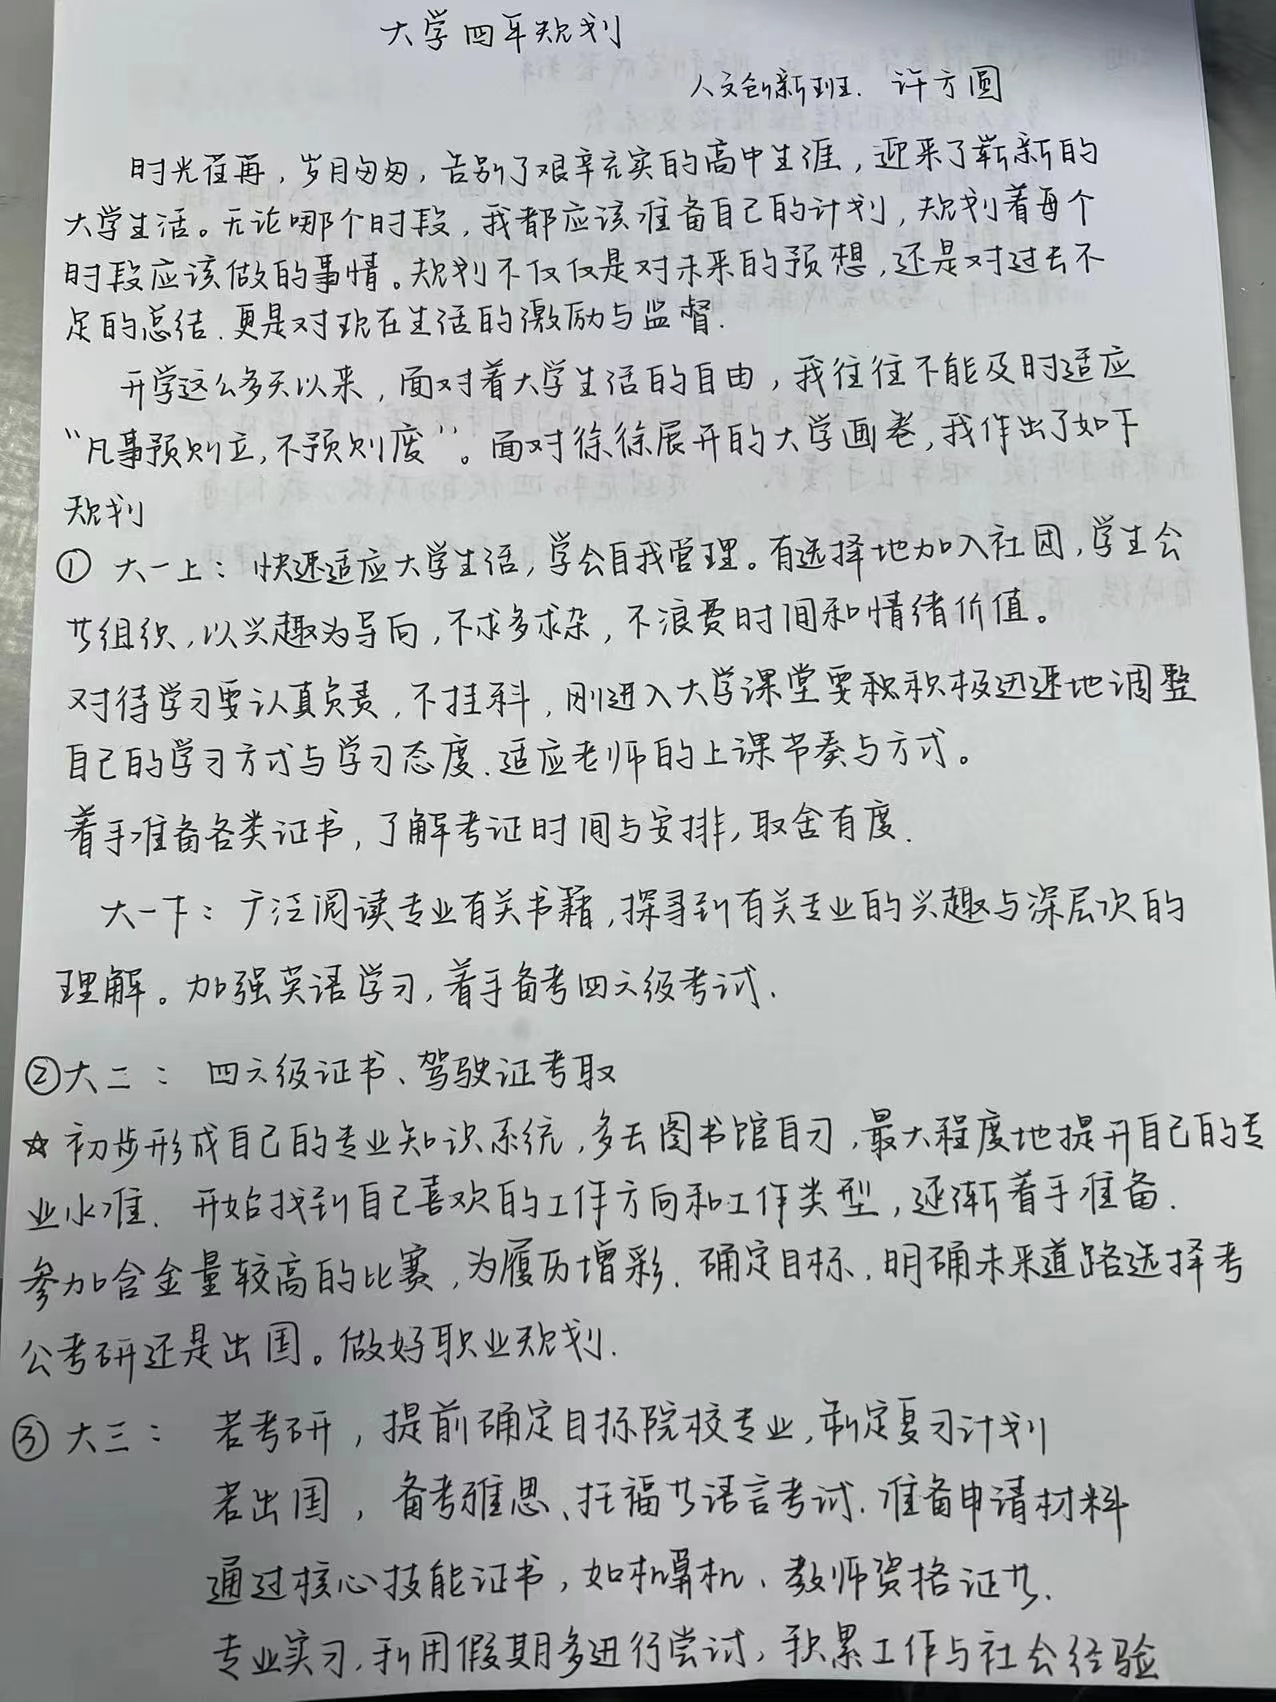 大学四年规划
人文创新班. 许方圆
时光荏苒，岁月匆匆，告别了艰辛充实的高中生涯，迎来了崭新的
大学生活。无论哪个时段，我都应该准备自己的计划，规划着每个
时段应该做的事情。规划不仅仅是对未来的预想，还是对过去不
足的总结.更是对现在生活的激励与监督.
开学这么多天以来，面对着大学生活的自由，我往往不能及时适应
“凡事预则立，不预则废”。面对徐徐展开的大学画卷，我作出了如下
规划
① 大一上：快速适应大学生活，学会自我管理。有选择地加入社团，学生会
等组织，以兴趣为导向，不求多求杂，不浪费时间和情绪价值。
对待学习要认真负责，不挂科，刚进入大学课堂要积积极迅速地调整
自己的学习方式与学习态度.适应老师的上课节奏与方式。
着手准备各类证书，了解考证时间与安排，取舍有度.
大一下：广泛阅读专业有关书籍，探寻到有关专业的兴趣与深层次的
理解。加强英语学习，着手备考四六级考试.
②大二：四六级证书、驾驶证考取
☆初步形成自己的专业知识系统，多去图书馆自习，最大程度地提升自己的专
业水准. 开始找到自己喜欢的工作方向和工作类型，逐渐着手准备.
参加含金量较高的比赛，为履历增彩. 确定目标.明确未来道路选择考
公考研还是出国。做好职业规划.
③ 大三：若考研，提前确定目标院校专业，制定复习计划
若出国，备考雅思、托福等语言考试.准备申请材料
通过核心技能证书，如机算机、教师资格证等.
专业实习，利用假期多进行尝试，积累工作与社会经验